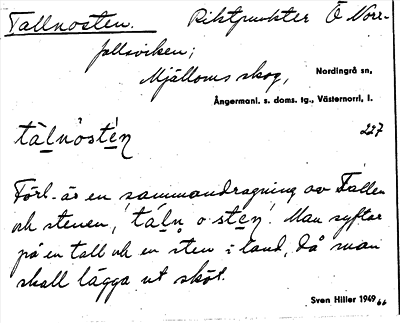 Tallnosten. Riktpunkter Ö Norr-
fällsviken;
Mjälloms skog, Nordingrå sn,
Ångermanl. s. doms. tg., Västernorrl. l.
tàlnòstén 227
Förl. är en sammandragning av Tallen
och stenen, táln o stén. Man syftar
på en tall och en sten i land, då man
skall lägga ut sköt.
Sven Hiller 1949